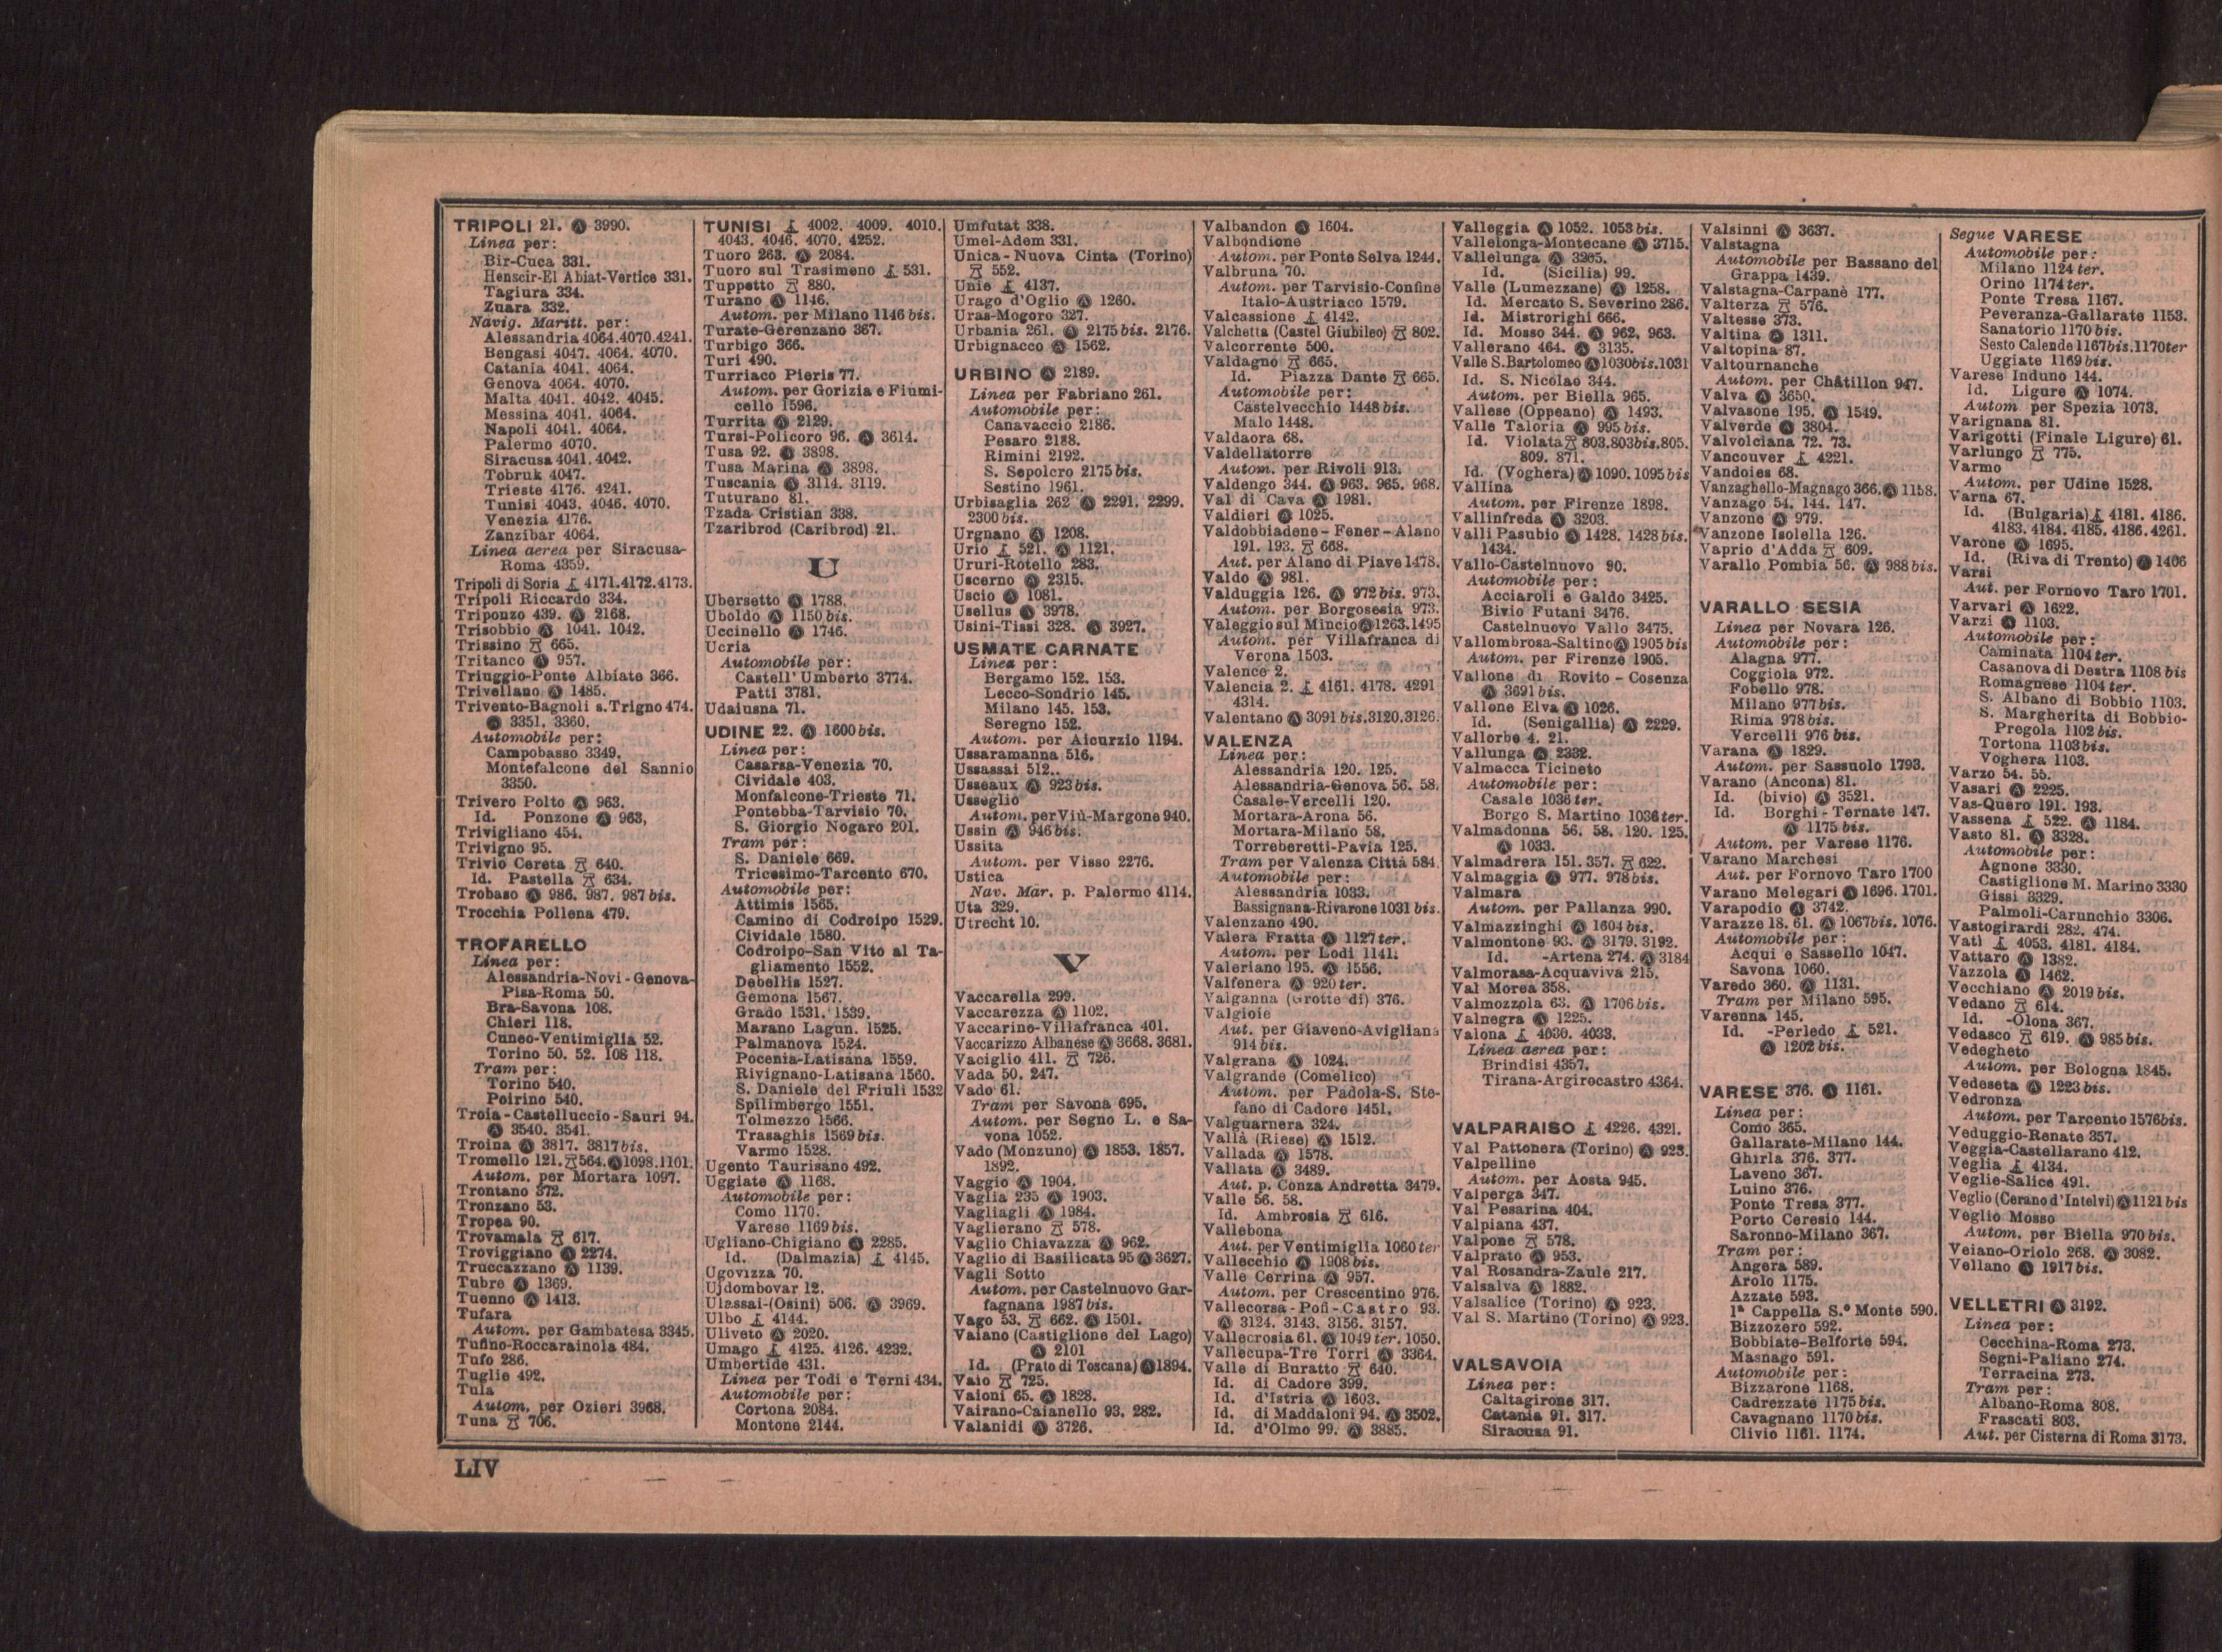 TRIPOLI 21. Ⓐ 3990.
Linea per:
Bir-Cuca 331.
Henscir-El Abiat-Vertice 331.
Tagiura 334.
Zuara 332.
Navig. Maritt. per:
Alessandria 4064.4070.4241.
Bengasi 4047. 4064. 4070.
Catania 4041. 4064.
Genova 4064. 4070.
Malta 4041. 4042. 4045.
Messina 4041. 4064.
Napoli 4041. 4064.
Palermo 4070.
Siracusa 4041. 4042.
Tobruk 4047.
Trieste 4176. 4241.
Tunisi 4043. 4046. 4070.
Venezia 4176.
Zanzibar 4064.
Linea aerea per Siracusa-
Roma 4359.
Tripoli di Soria 4171.4172.4173.
Tripoli Riccardo 334.
Triponzo 439. Ⓐ 2168.
Trisobbio Ⓐ 1041. 1042.
Trissino 665.
Tritanco Ⓐ 957.
Triuggio-Ponte Albiate 366.
Trivellano Ⓐ 1485.
Trivento-Bagnoli s.Trigno 474.
Ⓐ 3351. 3360.
Automobile per:
Campobasso 3349.
Montefalcone del Sannio
3350.
Trivero Polto Ⓐ 963.
Id. Ponzone Ⓐ 963,
Trivigliano 454.
Trivigno 95.
Trivio Cereta 640.
Id. Pastella 634.
Trobaso Ⓐ 986. 987. 987 bis.
Trocchia Pollena 479.
TROFARELLO
Linea per:
Alessandria-Novi-Genova-
Pisa-Roma 50.
Bra-Savona 108.
Chieri 118.
Cuneo-Ventimiglia 52.
Torino 50. 52. 108 118.
Tram per:
Torino 540.
Poirino 540.
Troia-Castelluccio-Sauri 94.
Ⓐ 3540. 3541.
Troina Ⓐ 3817. 3817 bis.
Tromello 121. 564. Ⓐ 1098.1101.
Autom. per Mortara 1097.
Trontano 372.
Tronzano 53.
Tropea 90.
Trovamala 617.
Troviggiano Ⓐ 2274.
Truccazzano Ⓐ 1139.
Tubre Ⓐ 1369.
Tuenno Ⓐ 1413.
Tufara
Autom. per Gambatesa 3345.
Tufino-Roccarainola 484.
Tufo 286.
Tuglie 492.
Tula
Autom. per Ozieri 3968.
Tuna 706.
TUNISI 4002. 4009. 4010.
4043. 4046. 4070. 4252.
Tuoro 263. Ⓐ 2084.
Tuoro sul Trasimeno 531.
Tuppetto 880.
Turano Ⓐ 1146.
Autom. per Milano 1146 bis.
Turate-Gerenzano 367.
Turbigo 366.
Turi 490.
Turriaco Pieris 77.
Autom. per Gorizia e Fiumi-
cello 1596.
Turrita Ⓐ 2129.
Tursi-Policoro 96. Ⓐ 3614.
Tusa 92. Ⓐ 3898.
Tusa Marina Ⓐ 3898.
Tuscania Ⓐ 3114. 3119.
Tuturano 81.
Tzada Cristian 338.
Tzaribrod (Caribrod) 21.
U
Ubersetto Ⓐ 1788.
Uboldo Ⓐ 1150 bis.
Uccinello Ⓐ 1746.
Ucria
Automobile per:
Castell' Umberto 3774.
Patti 3781.
Udaiusna 71.
UDINE 22. Ⓐ 1600 bis.
Linea per:
Casarsa-Venezia 70.
Cividale 403.
Monfalcone-Trieste 71.
Pontebba-Tarvisio 70.
S. Giorgio Nogaro 201.
Tram per:
S. Daniele 669.
Tricesimo-Tarcento 670.
Automobile per:
Attimis 1565.
Camino di Codroipo 1529.
Cividale 1580.
Codroipo-San Vito al Ta-
gliamento 1552.
Debellis 1527.
Gemona 1567.
Grado 1531. 1539.
Marano Lagun. 1525.
Palmanova 1524.
Pocenia-Latisana 1559.
Rivignano-Latisana 1560.
S. Daniele del Friuli 1532
Spilimbergo 1551.
Tolmezzo 1566.
Trasaghis 1569 bis.
Varmo 1528.
Ugento Taurisano 492.
Uggiate Ⓐ 1168.
Automobile per:
Como 1170.
Varese 1169 bis.
Ugliano-Chigiano Ⓐ 2285.
Id. (Dalmazia) 4145.
Ugovizza 70.
Ujdombovar 12.
Ulassai-(Osini) 506. Ⓐ 3969.
Ulbo 4144.
Uliveto Ⓐ 2020.
Umago 4125. 4126. 4232.
Umbertide 431.
Linea per Todi e Terni 434.
Automobile per:
Cortona 2084.
Montone 2144.
Umfutat 338.
Umel-Adem 331.
Unica-Nuova Cinta (Torino)
552.
Unie 4137.
Urago d'Oglio Ⓐ 1260.
Uras-Mogoro 327.
Urbania 261. Ⓐ 2175 bis. 2176.
Urbignacco Ⓐ 1562.
URBINO Ⓐ 2189.
Linea per Fabriano 261.
Automobile per:
Canavaccio 2186.
Pesaro 2188.
Rimini 2192.
S. Sepolcro 2175 bis.
Sestino 1961.
Urbisaglia 262 Ⓐ 2291. 2299.
2300 bis.
Urgnano Ⓐ 1208.
Urio 521. Ⓐ 1121.
Ururi-Rotello 283.
Uscerno Ⓐ 2315.
Uscio Ⓐ 1081.
Usellus Ⓐ 3978.
Usini-Tissi 328. Ⓐ 3927.
USMATE CARNATE
Linea per:
Bergamo 152. 153.
Lecco-Sondrio 145.
Milano 145. 153.
Seregno 152.
Autom. per Aicurzio 1194.
Ussaramanna 516.
Ussassai 512..
Usseaux Ⓐ 923 bis.
Usseglio
Autom. per Viù-Margone 940.
Ussin Ⓐ 946 bis.
Ussita
Autom. per Visso 2276.
Ustica
Nav. Mar. p. Palermo 4114.
Uta 329.
Utrecht 10.
V
Vaccarella 299.
Vaccarezza Ⓐ 1102.
Vaccarino-Villafranca 401.
Vaccarizzo Albanese Ⓐ 3668. 3681.
Vaciglio 411. 726.
Vada 50. 247.
Vado 61.
Tram per Savona 695.
Autom. per Segno L. e Sa-
vona 1052.
Vado (Monzuno) Ⓐ 1853. 1857.
1892.
Vaggio Ⓐ 1904.
Vaglia 235 Ⓐ 1903.
Vagliagli Ⓐ 1984.
Vaglierano 578.
Vaglio Chiavazza Ⓐ 962.
Vaglio di Basilicata 95 Ⓐ 3627.
Vagli Sotto
Autom. per Castelnuovo Gar-
fagnana 1987 bis.
Vago 53. 662. Ⓐ 1501.
Vaiano (Castiglione del Lago)
Ⓐ 2101
Id. (Prato di Toscana) Ⓐ 1894.
Vaio 725.
Vaioni 65. Ⓐ 1828.
Vairano-Caianello 93. 282.
Valanidi Ⓐ 3726.
Valbandon Ⓐ 1604.
Valbondione
Autom. per Ponte Selva 1244.
Valbruna 70.
Autom. per Tarvisio-Confine
Italo-Austriaco 1579.
Valcassione 4142.
Valchetta (Castel Giubileo) 802.
Valcorrente 500.
Valdagno 665.
Id. Piazza Dante 665.
Automobile per:
Castelvecchio 1448 bis.
Malo 1448.
Valdaora 68.
Valdellatorre
Autom. per Rivoli 913.
Valdengo 344. Ⓐ 963. 965. 968.
Val di Cava Ⓐ 1981.
Valdieri Ⓐ 1025.
Valdobbiadene-Fener-Alano
191. 193. 668.
Aut. per Alano di Piave 1478.
Valdo Ⓐ 981.
Valduggia 126. Ⓐ 972 bis. 973.
Autom. per Borgosesia 973.
Valeggio sul Mincio Ⓐ 1263.1495
Autom. per Villafranca di
Verona 1503.
Valence 2.
Valencia 2. 4161. 4178. 4291
4314.
Valentano Ⓐ 3091 bis.3120.3126.
VALENZA
Linea per:
Alessandria 120. 125.
Alessandria-Genova 56. 58.
Casale-Vercelli 120.
Mortara-Arona 56.
Mortara-Milano 58.
Torreberetti-Pavia 125.
Tram per Valenza Città 584.
Automobile per:
Alessandria 1033.
Bassignana-Rivarone 1031 bis.
Valenzano 490.
Valera Fratta Ⓐ 1127 ter.
Autom. per Lodi 1141.
Valeriano 195. Ⓐ 1556.
Valfenera Ⓐ 920 ter.
Valganna (Grotte di) 376.
Valgioie
Aut. per Giaveno-Avigliana
914 bis.
Valgrana Ⓐ 1024.
Valgrande (Comelico)
Autom. per Padola-S. Ste-
fano di Cadore 1451.
Valguarnera 324.
Vallà (Riese) Ⓐ 1512.
Vallada Ⓐ 1578.
Vallata Ⓐ 3489.
Aut. p. Conza Andretta 3479.
Valle 56. 58.
Id. Ambrosia 616.
Vallebona
Aut. per Ventimiglia 1060 ter
Vallecchio Ⓐ 1908 bis.
Valle Cerrina Ⓐ 957.
Autom. per Crescentino 976.
Vallecorsa-Pofi-Castro 93.
Ⓐ 3124. 3143. 3156. 3157.
Vallecrosia 61. Ⓐ 1049 ter. 1050.
Vallecupa-Tre Torri Ⓐ 3364.
Valle di Buratto 640.
Id. di Cadore 399.
Id. d'Istria Ⓐ 1603.
Id. di Maddaloni 94. Ⓐ 3502.
Id. d'Olmo 99. Ⓐ 3885.
Valleggia Ⓐ 1052. 1053 bis.
Vallelonga-Montecane Ⓐ 3715.
Vallelunga Ⓐ 3205.
Id. (Sicilia) 99.
Valle (Lumezzane) Ⓐ 1258.
Id. Mercato S. Severino 286.
Id. Mistrorighi 666.
Id. Mosso 344. Ⓐ 962. 963.
Vallerano 464. Ⓐ 3135.
Valle S. Bartolomeo Ⓐ 1030bis.1031
Id. S. Nicolao 344.
Autom. per Biella 965.
Vallese (Oppeano) Ⓐ 1493.
Valle Taloria Ⓐ 995 bis.
Id. Violata 803.803bis.805.
809. 871.
Id. (Voghera) Ⓐ 1090. 1095 bis
Vallina
Autom. per Firenze 1898.
Vallinfreda Ⓐ 3203.
Valli Pasubio Ⓐ 1428. 1428 bis.
1434.
Vallo-Castelnuovo 90.
Automobile per:
Acciaroli e Galdo 3425.
Bivio Futani 3476.
Castelnuovo Vallo 3475.
Vallombrosa-Saltino Ⓐ 1905 bis
Autom. per Firenze 1905.
Vallone di Rovito-Cosenza
Ⓐ 3691 bis.
Vallone Elva Ⓐ 1026.
Id. (Senigallia) Ⓐ 2229.
Vallorbe 4. 21.
Vallunga Ⓐ 2332.
Valmacca Ticineto
Automobile per:
Casale 1036 ter.
Borgo S. Martino 1036 ter.
Valmadonna 56. 58. 120. 125.
Ⓐ 1033.
Valmadrera 151. 357. 622.
Valmaggia Ⓐ 977. 978 bis.
Valmara
Autom. per Pallanza 990.
Valmazzinghi Ⓐ 1604 bis.
Valmontone 93. Ⓐ 3179. 3192.
Id. -Artena 274. Ⓐ 3184
Valmorasa-Acquaviva 215.
Val Morea 358.
Valmozzola 63. Ⓐ 1706 bis.
Valnegra Ⓐ 1225.
Valona 4030. 4033.
Linea aerea per:
Brindisi 4357.
Tirana-Argirocastro 4364.
VALPARAISO 4226. 4321.
Val Pattonera (Torino) Ⓐ 923.
Valpelline
Autom. per Aosta 945.
Valperga 347.
Val Pesarina 404.
Valpiana 437.
Valpone 578.
Valprato Ⓐ 953.
Val Rosandra-Zaule 217.
Valsalva Ⓐ 1882.
Valsalice (Torino) Ⓐ 923.
Val S. Martino (Torino) Ⓐ 923.
VALSAVOIA
Linea per:
Caltagirone 317.
Catania 91. 317.
Siracusa 91.
Valsinni Ⓐ 3637.
Valstagna
Automobile per Bassano del
Grappa 1439.
Valstagna-Carpanè 177.
Valterza 576.
Valtesse 373.
Valtina Ⓐ 1311.
Valtopina 87.
Valtournanche
Autom. per Châtillon 947.
Valva Ⓐ 3650.
Valvasone 195. Ⓐ 1549.
Valverde Ⓐ 3804.
Valvolciana 72. 73.
Vancouver 4221.
Vandoies 68.
Vanzaghello-Magnago 366. Ⓐ 1158.
Vanzago 54. 144. 147.
Vanzone Ⓐ 979.
Vanzone Isolella 126.
Vaprio d'Adda 609.
Varallo Pombia 56. Ⓐ 988 bis.
VARALLO SESIA
Linea per Novara 126.
Automobile per:
Alagna 977.
Coggiola 972.
Fobello 978.
Milano 977 bis.
Rima 978 bis.
Vercelli 976 bis.
Varana Ⓐ 1829.
Autom. per Sassuolo 1793.
Varano (Ancona) 81.
Id. (bivio) Ⓐ 3521.
Id. Borghi-Ternate 147.
Ⓐ 1175 bis.
Autom. per Varese 1176.
Varano Marchesi
Aut. per Fornovo Taro 1700
Varano Melegari Ⓐ 1696. 1701.
Varapodio Ⓐ 3742.
Varazze 18. 61. Ⓐ 1067bis. 1076.
Automobile per:
Acqui e Sassello 1047.
Savona 1060.
Varedo 360. Ⓐ 1131.
Tram per Milano 595.
Varenna 145.
Id. -Perledo 521.
Ⓐ 1202 bis.
VARESE 376. Ⓐ 1161.
Linea per:
Como 365.
Gallarate-Milano 144.
Ghirla 376. 377.
Laveno 367.
Luino 376.
Ponte Tresa 377.
Porto Ceresio 144.
Saronno-Milano 367.
Tram per:
Angera 589.
Arolo 1175.
Azzate 593.
1ª Cappella S.º Monte 590.
Bizzozero 592.
Bobbiate-Belforte 594.
Masnago 591.
Automobile per:
Bizzarone 1168.
Cadrezzate 1175 bis.
Cavagnano 1170 bis.
Clivio 1161. 1174.
Segue VARESE
Automobile per:
Milano 1124 ter.
Orino 1174 ter.
Ponte Tresa 1167.
Peveranza-Gallarate 1153.
Sanatorio 1170 bis.
Sesto Calende 1167bis.1170ter
Uggiate 1169 bis.
Varese Induno 144.
Id. Ligure Ⓐ 1074.
Autom per Spezia 1073.
Varignana 81.
Varigotti (Finale Ligure) 61.
Varlungo 775.
Varmo
Autom. per Udine 1528.
Varna 67.
Id. (Bulgaria) 4181. 4186.
4183. 4184. 4185. 4186. 4261.
Varone Ⓐ 1695.
Id. (Riva di Trento) Ⓐ 1406
Varsi
Aut. per Fornovo Taro 1701.
Varvari Ⓐ 1622.
Varzi Ⓐ 1103.
Automobile per:
Caminata 1104 ter.
Casanova di Destra 1108 bis
Romagnese 1104 ter.
S. Albano di Bobbio 1103.
S. Margherita di Bobbio-
Pregola 1102 bis.
Tortona 1103 bis.
Voghera 1103.
Varzo 54. 55.
Vasari Ⓐ 2225.
Vas-Quero 191. 193.
Vassena 522. Ⓐ 1184.
Vasto 81. Ⓐ 3328.
Automobile per:
Agnone 3330.
Castiglione M. Marino 3330
Gissi 3329.
Palmoli-Carunchio 3306.
Vastogirardi 282. 474.
Vatì 4053. 4181. 4184.
Vattaro Ⓐ 1382.
Vazzola Ⓐ 1462.
Vecchiano Ⓐ 2019 bis.
Vedano 614.
Id. -Olona 367.
Vedasco 619. Ⓐ 985 bis.
Vedegheto
Autom. per Bologna 1845.
Vedeseta Ⓐ 1223 bis.
Vedronza
Autom. per Tarcento 1576bis.
Veduggio-Renate 357.
Veggia-Castellarano 412.
Veglia 4134.
Veglie-Salice 491.
Veglio (Cerano d'Intelvi) Ⓐ 1121 bis
Veglio Mosso
Autom. per Biella 970 bis.
Veiano-Oriolo 268. Ⓐ 3082.
Vellano Ⓐ 1917 bis.
VELLETRI Ⓐ 3192.
Linea per:
Cecchina-Roma 273.
Segni-Paliano 274.
Terracina 273.
Tram per:
Albano-Roma 808.
Frascati 803.
Aut. per Cisterna di Roma 3173.
LIV